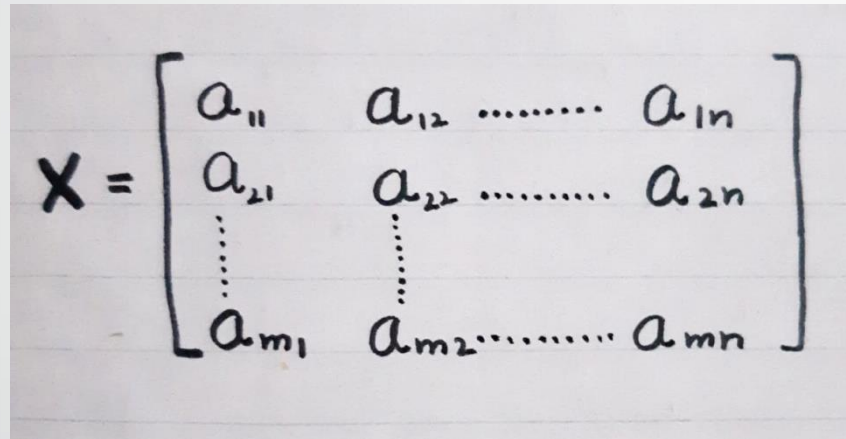 a₁₁ a₁₂ ......... a₁ₙ
X = a₂₁ a₂₂ .......... a₂ₙ
aₘ₁ aₘ₂ .......... aₘₙ